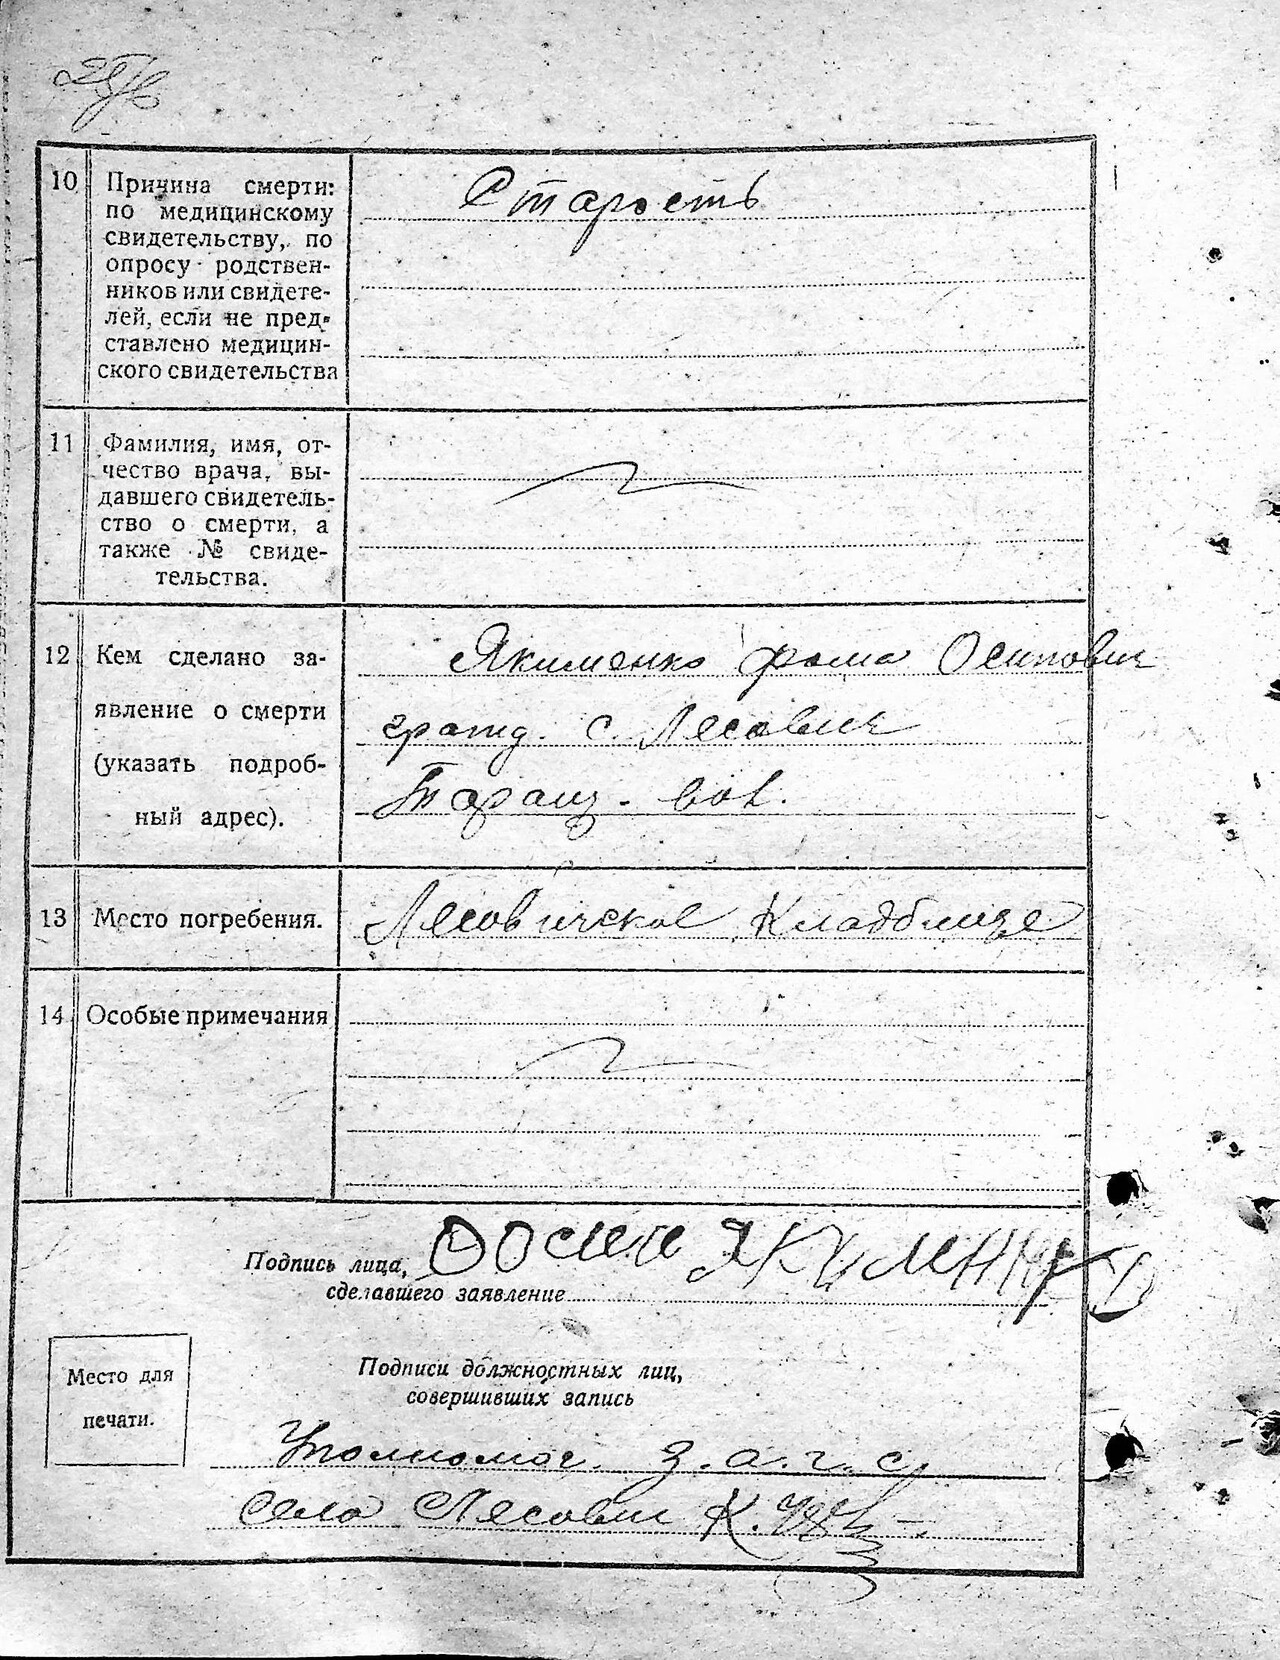 10 Причина смерти:
по медицинскому
свидетельству, по
опросу родствен-
ников или свидете-
лей, если не пред-
ставлено медицин-
ского свидетельства
Старость
11 Фамилия, имя, от-
чество врача, вы-
давшего свидетель-
ство о смерти, а
также № свиде-
тельства.
12 Кем сделано за-
явление о смерти
(указать подроб-
ный адрес).
Якименко Фома Осипович
гражд. с. Лесович
Таращ. вол.
13 Место погребения.
Лесовичское Кладбище
14 Особые примечания
Подпись лица,
сделавшего заявление
Место для
печати.
Подписи должностных лиц,
совершивших запись
Уполномоч. З.а.г.с.
села Лесович К.